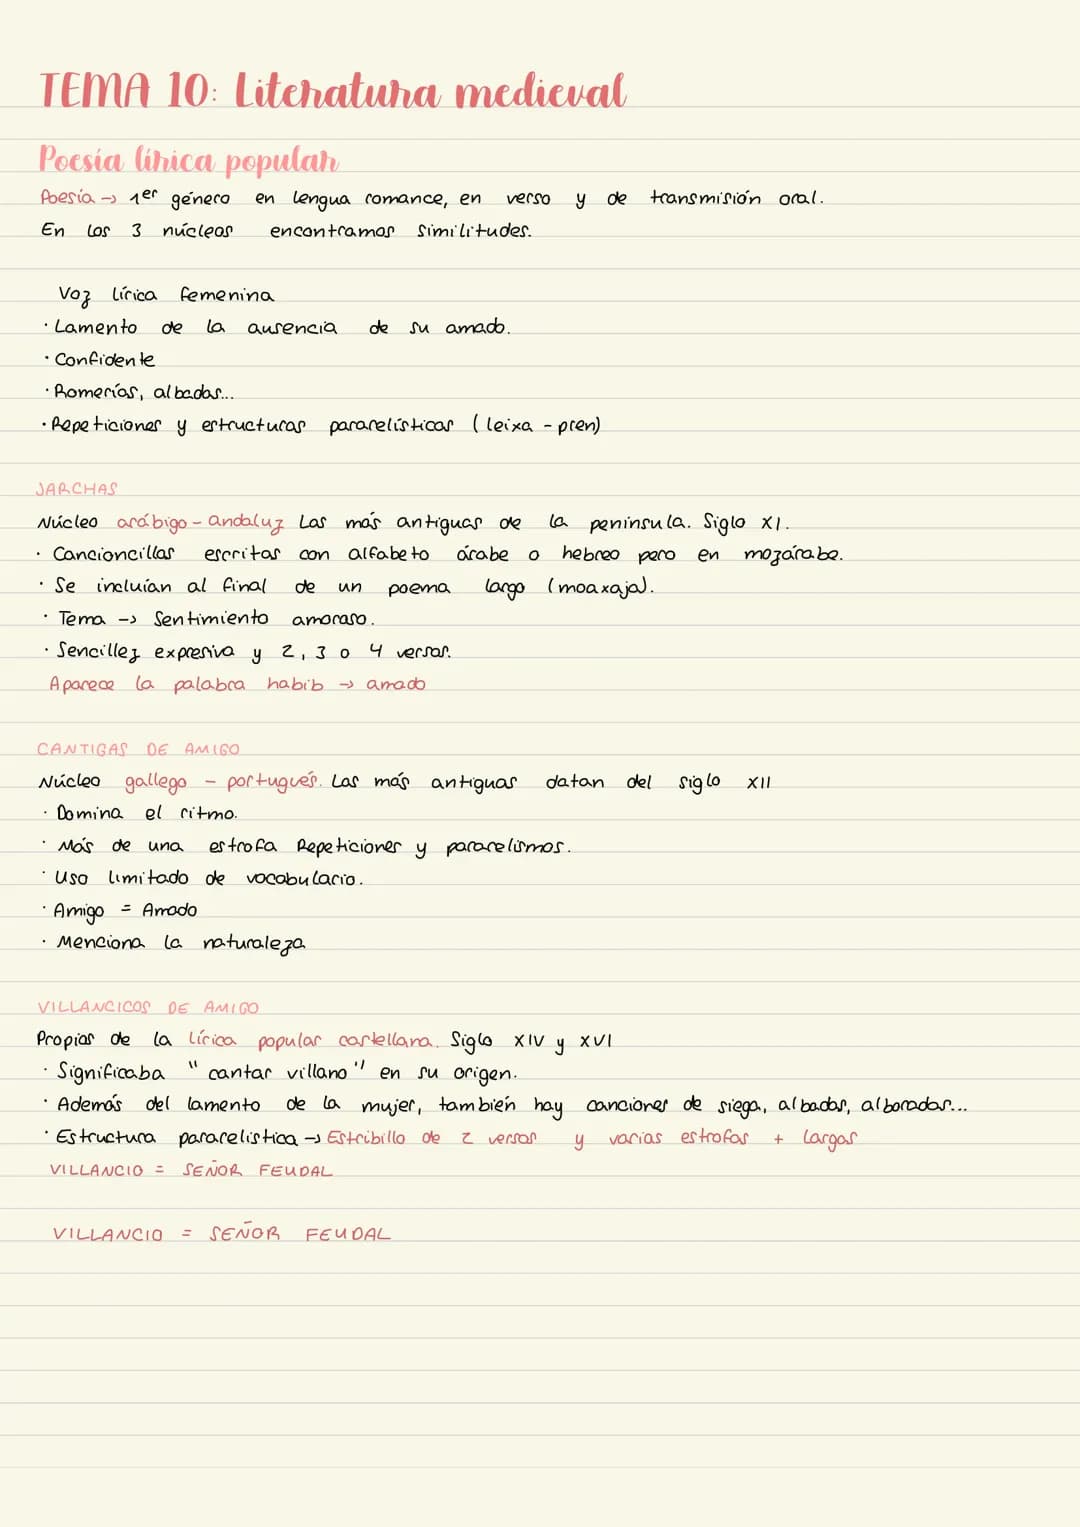 TEMA 10: Literatura medieval
Poesía lírica popular
Poesía → 1er género en lengua romance, en verso y de transmisión oral.
En los 3 núcleos encontramos similitudes.
Voz lírica femenina
· Lamento de la ausencia de su amado.
· Confidente
· Romerías, albadas...
· Repeticiones y estructuras pararelísticas (leixa - pren)
JARCHAS
Núcleo arábigo - andaluz Las más antiguas de la península. Siglo XI.
· Cancioncillas escritas con alfabeto árabe o hebreo pero en mozárabe.
· Se incluían al final de un poema largo (moaxaja).
· Tema → Sentimiento amoroso.
· Sencillez expresiva y 2, 3 o 4 versos.
Aparece la palabra habib → amado
CANTIGAS DE AMIGO
Núcleo gallego - portugués. Las más antiguas datan del siglo XII
· Domina el ritmo.
· Más de una estrofa Repeticiones y pararelismos.
· Uso limitado de vocabulario.
· Amigo = Amado
· Menciona la naturaleza
VILLANCICOS DE AMIGO
Propias de la lírica popular castellana. Siglo XIV y XVI
· Significaba "cantar villano" en su origen.
· Además del lamento de la mujer, también hay canciones de siega, albadas, alboradas...
· Estructura pararelistica → Estribillo de 2 versos y varias estrofas + largas
VILLANCIO = SEÑOR FEUDAL
VILLANCIO = SEÑOR FEUDAL